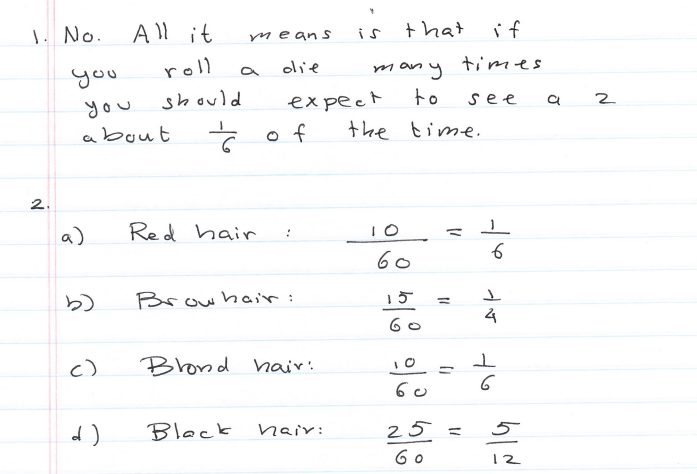 1. No. All it means is that if
you roll a die many times
you should expect to see a 2
about 1/6 of the time.
2.
a) Red hair : 10/60 = 1/6
b) Brow hair : 15/60 = 1/4
c) Blond hair: 10/60 = 1/6
d) Black hair: 25/60 = 5/12